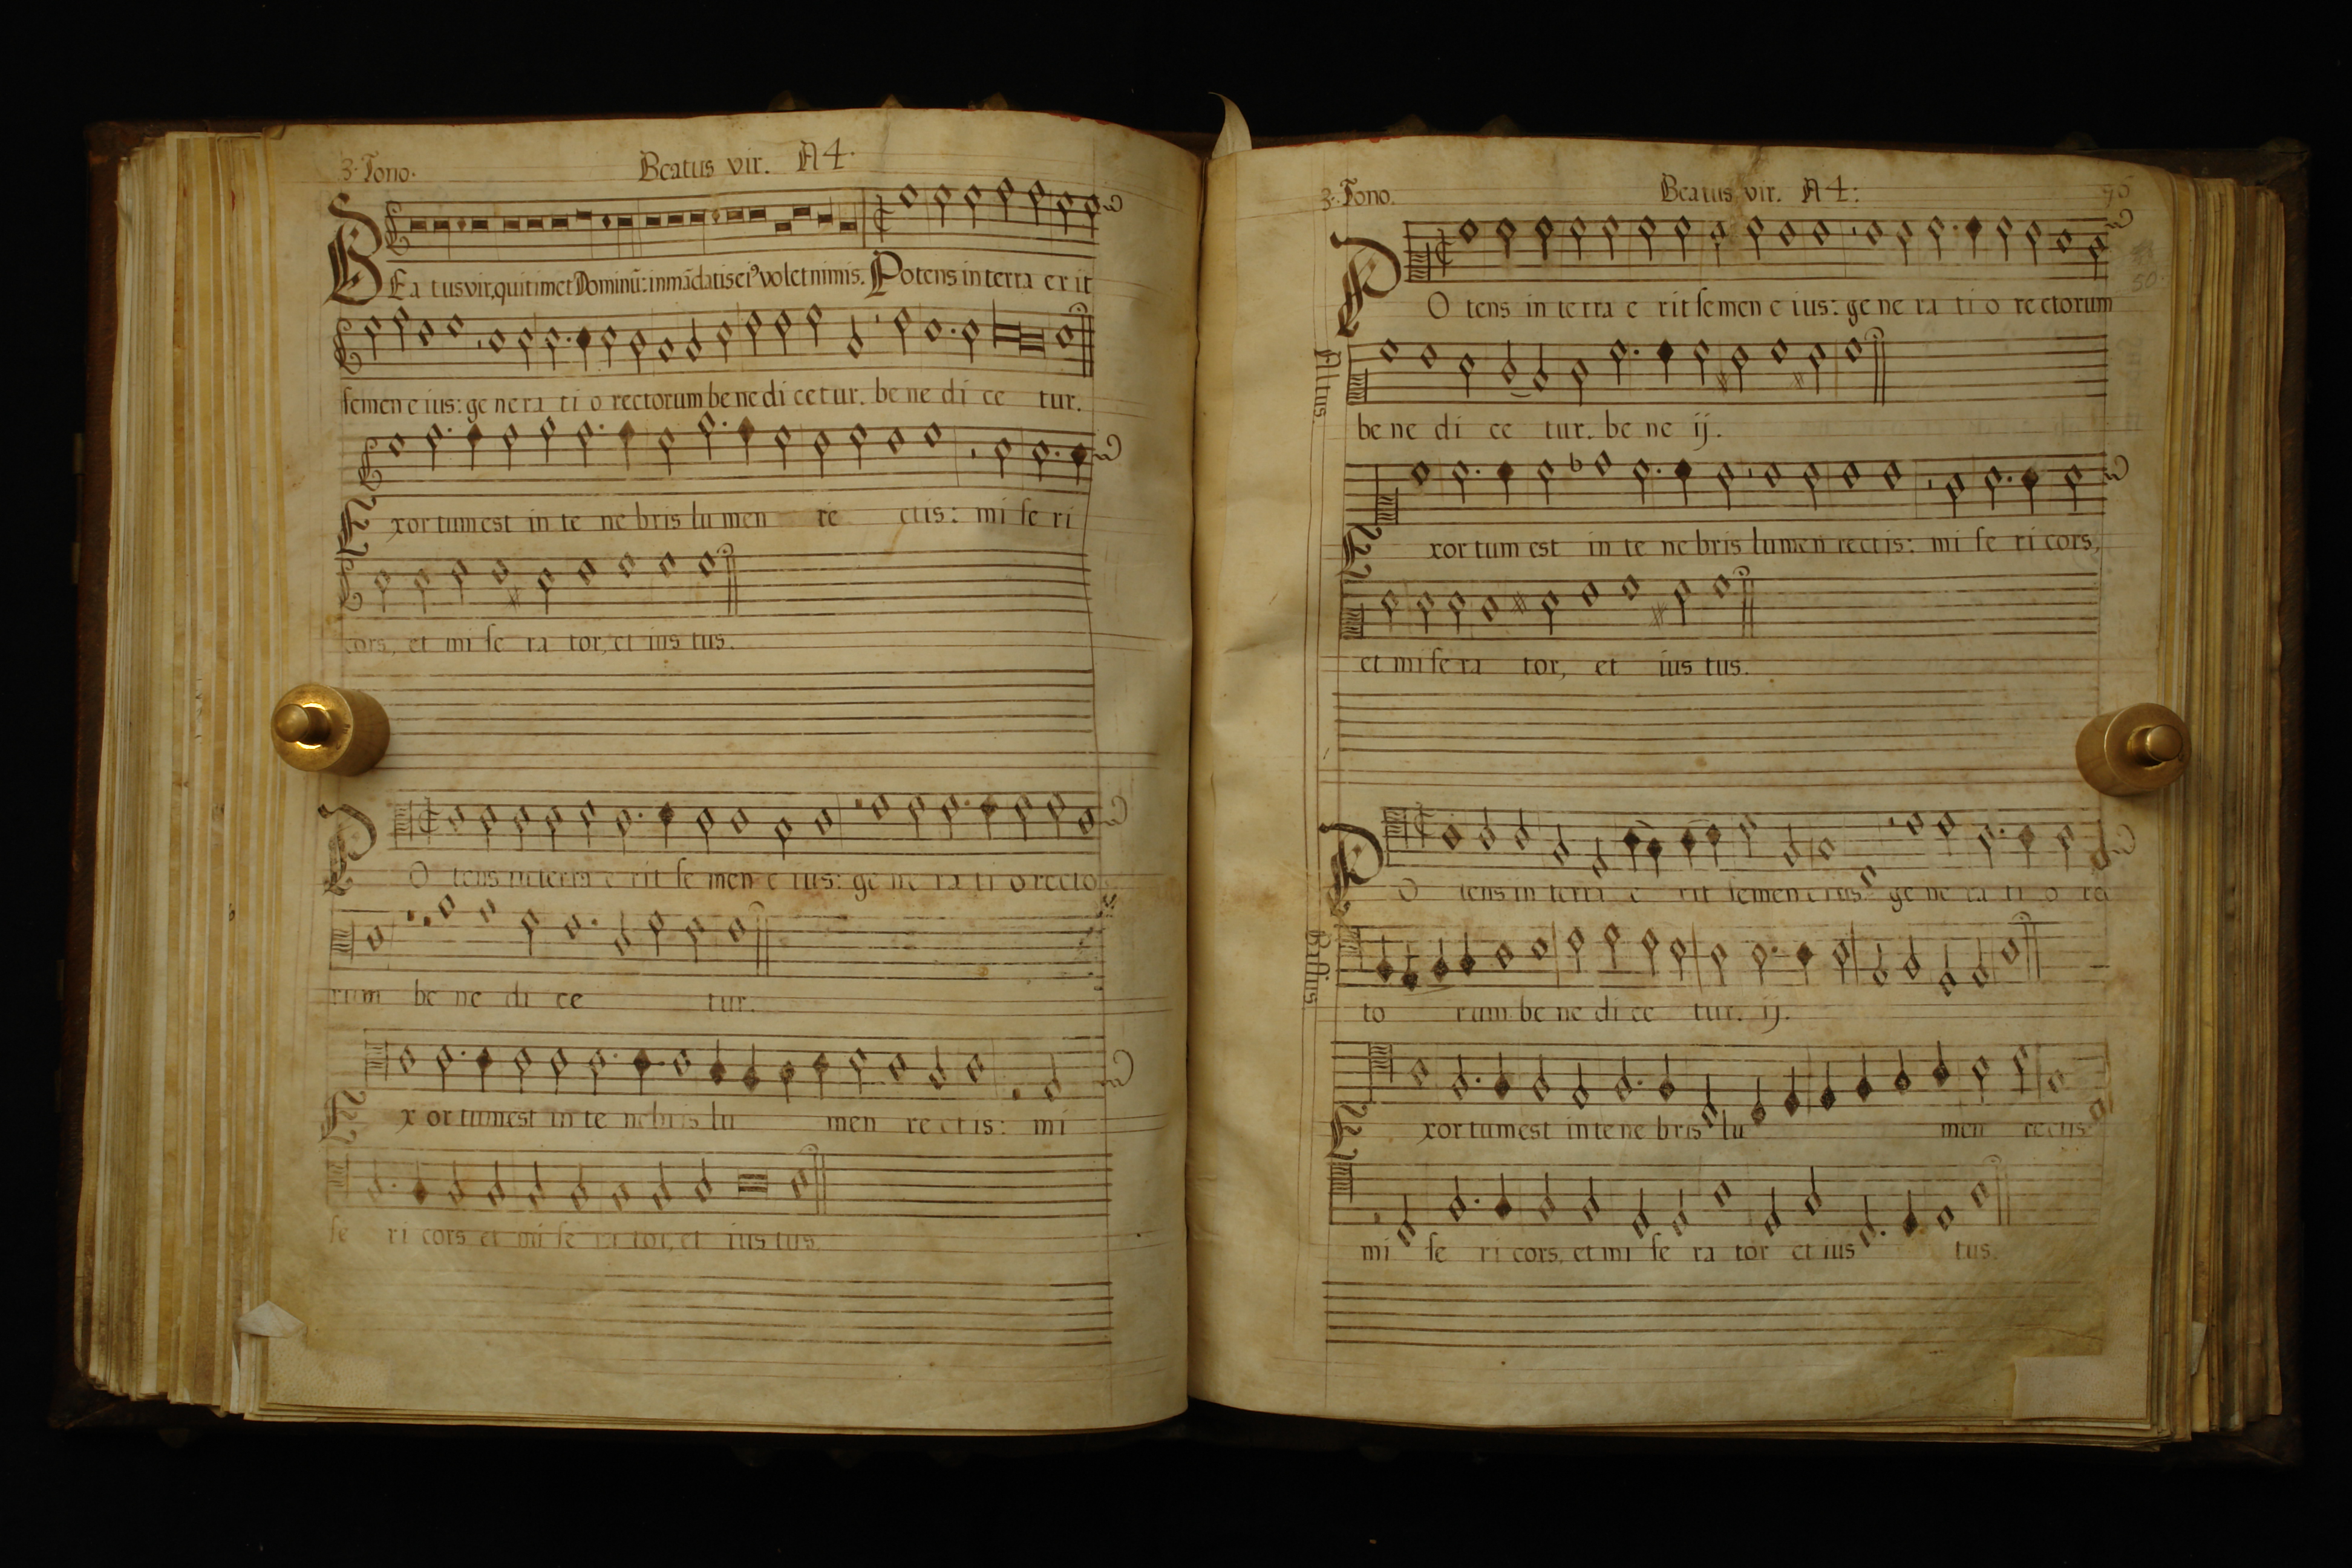 3. Tono. Beatus vir. A 4.
BEa tus vir, qui timet Dominũ: in mãdatis ei⁹ volet nimis. Potens in terra er it
semen e ius: ge ne ra ti o rectorum be ne di cetur. be ne di ce tur.
Exor tum est in te ne bris lu men re ctis: mi se ri
cors, et mi se ra tor, et ius tus.
PO tens in terra e rit se men e ius: ge ne ra ti o recto
rum be ne di ce tur.
Ex or tum est in te nebris lu men re ct is: mi
se ri cors et mi se ra tor, et ius tus.
3. Tono. Beatus vir. A 4:
50.
PO tens in te rra e rit semen e ius: ge ne ra ti o re ctorum
Altus.
be ne di ce tur. be ne ij.
Exor tum est in te ne bris lumen rectis: mi se ri cors,
et mi se ra tor, et ius tus.
PO tens in terra e rit semen e ius: ge ne ra ti o re
Bassus
to rum be ne di ce tur. ij.
Exor tum est in te ne bris lu men rectis
mi se ri cors, et mi se ra tor et ius tus.